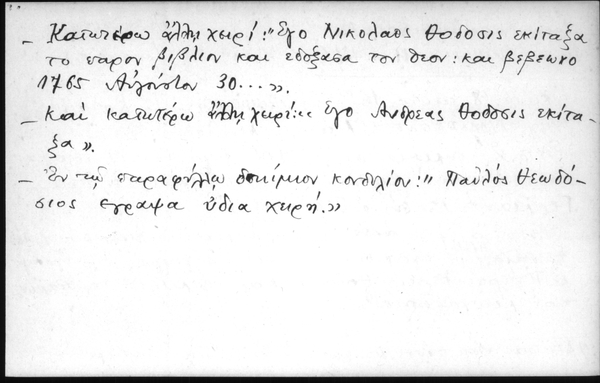 – Κατωτέρω ἄλλη χειρί: "Ἐγο Νικολαος Θοδοσις εκίταξα
το παρον βιβλιον και εδοξασα τον θεον: και βεβεωνο
1765 Αὐγούστου 30...».
– Και κατωτέρω ἄλλη χειρί: «Ἐγο Ανδρεας Θοδοσις εκίτα-
ξα».
– Ἐν τῷ παραφύλλῳ δοκίμιον κονδυλίου: "Παῦλός Θεωδό-
σιος εγραψα ὐδια χειρή.»